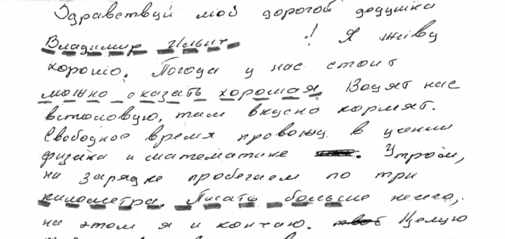 Здравствуй мой дорогой дедушка
Владимир Ильич ! Я живу
хорошо. Погода у нас стоит
можно сказать хорошая. Водят нас
встоловую, там вкусно кормят.
Свободное время провожу в
физики и математике . Утром,
на зарядке пробегаем по три
километра. Писать больше нечего,
на этом я и кончаю. Целую